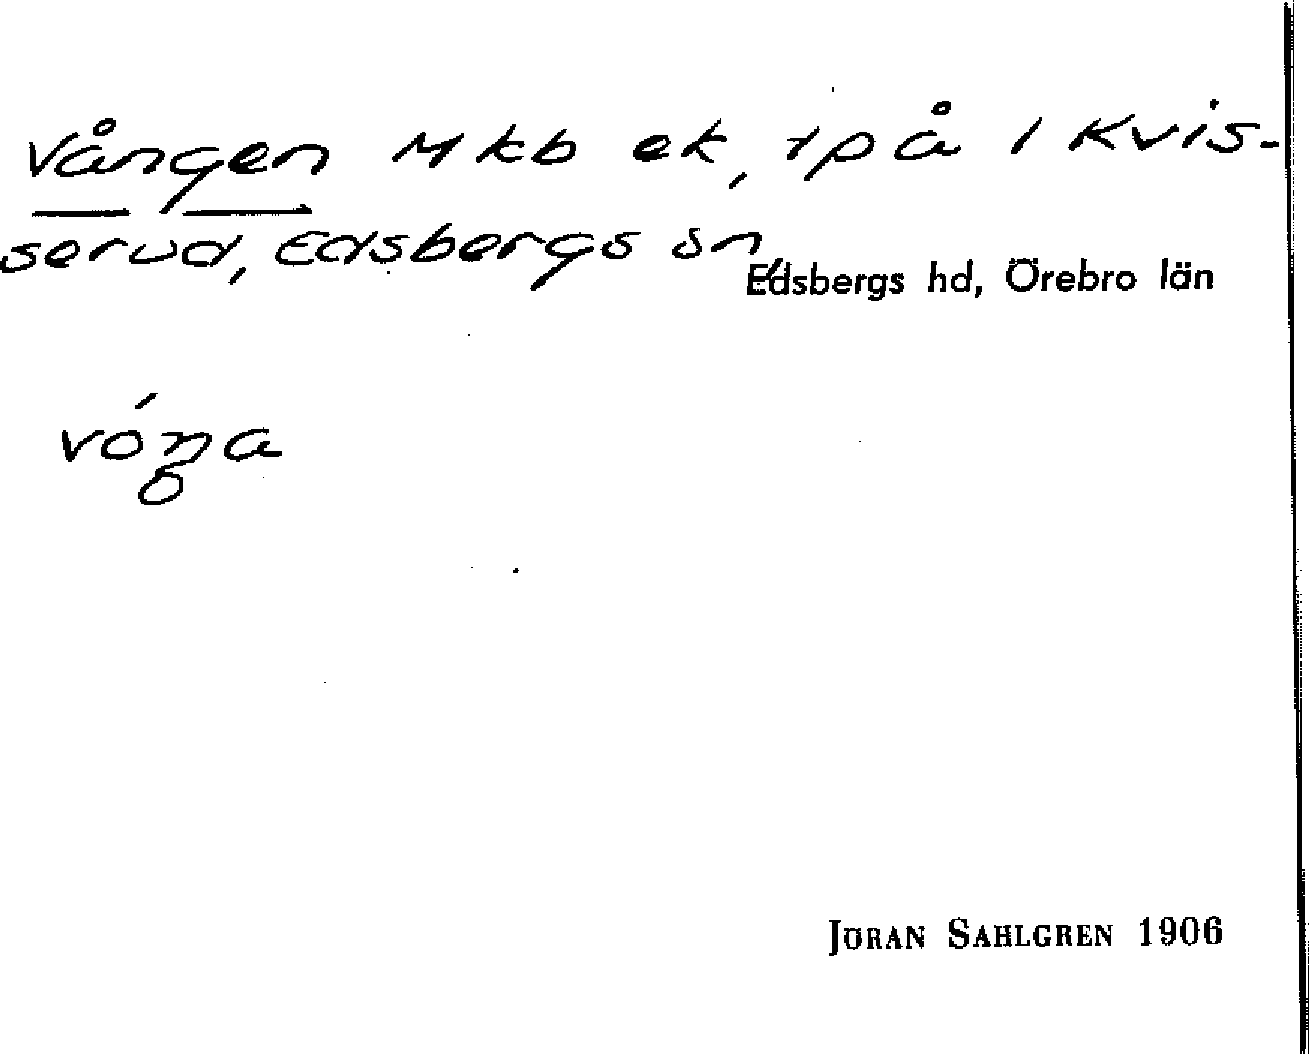 Vången Mkb ek, tpå i Kvis-
serud, Edsbergs sn,
Edsbergs hd, Örebro län
vóŋa
JÖRAN SAHLGREN 1906